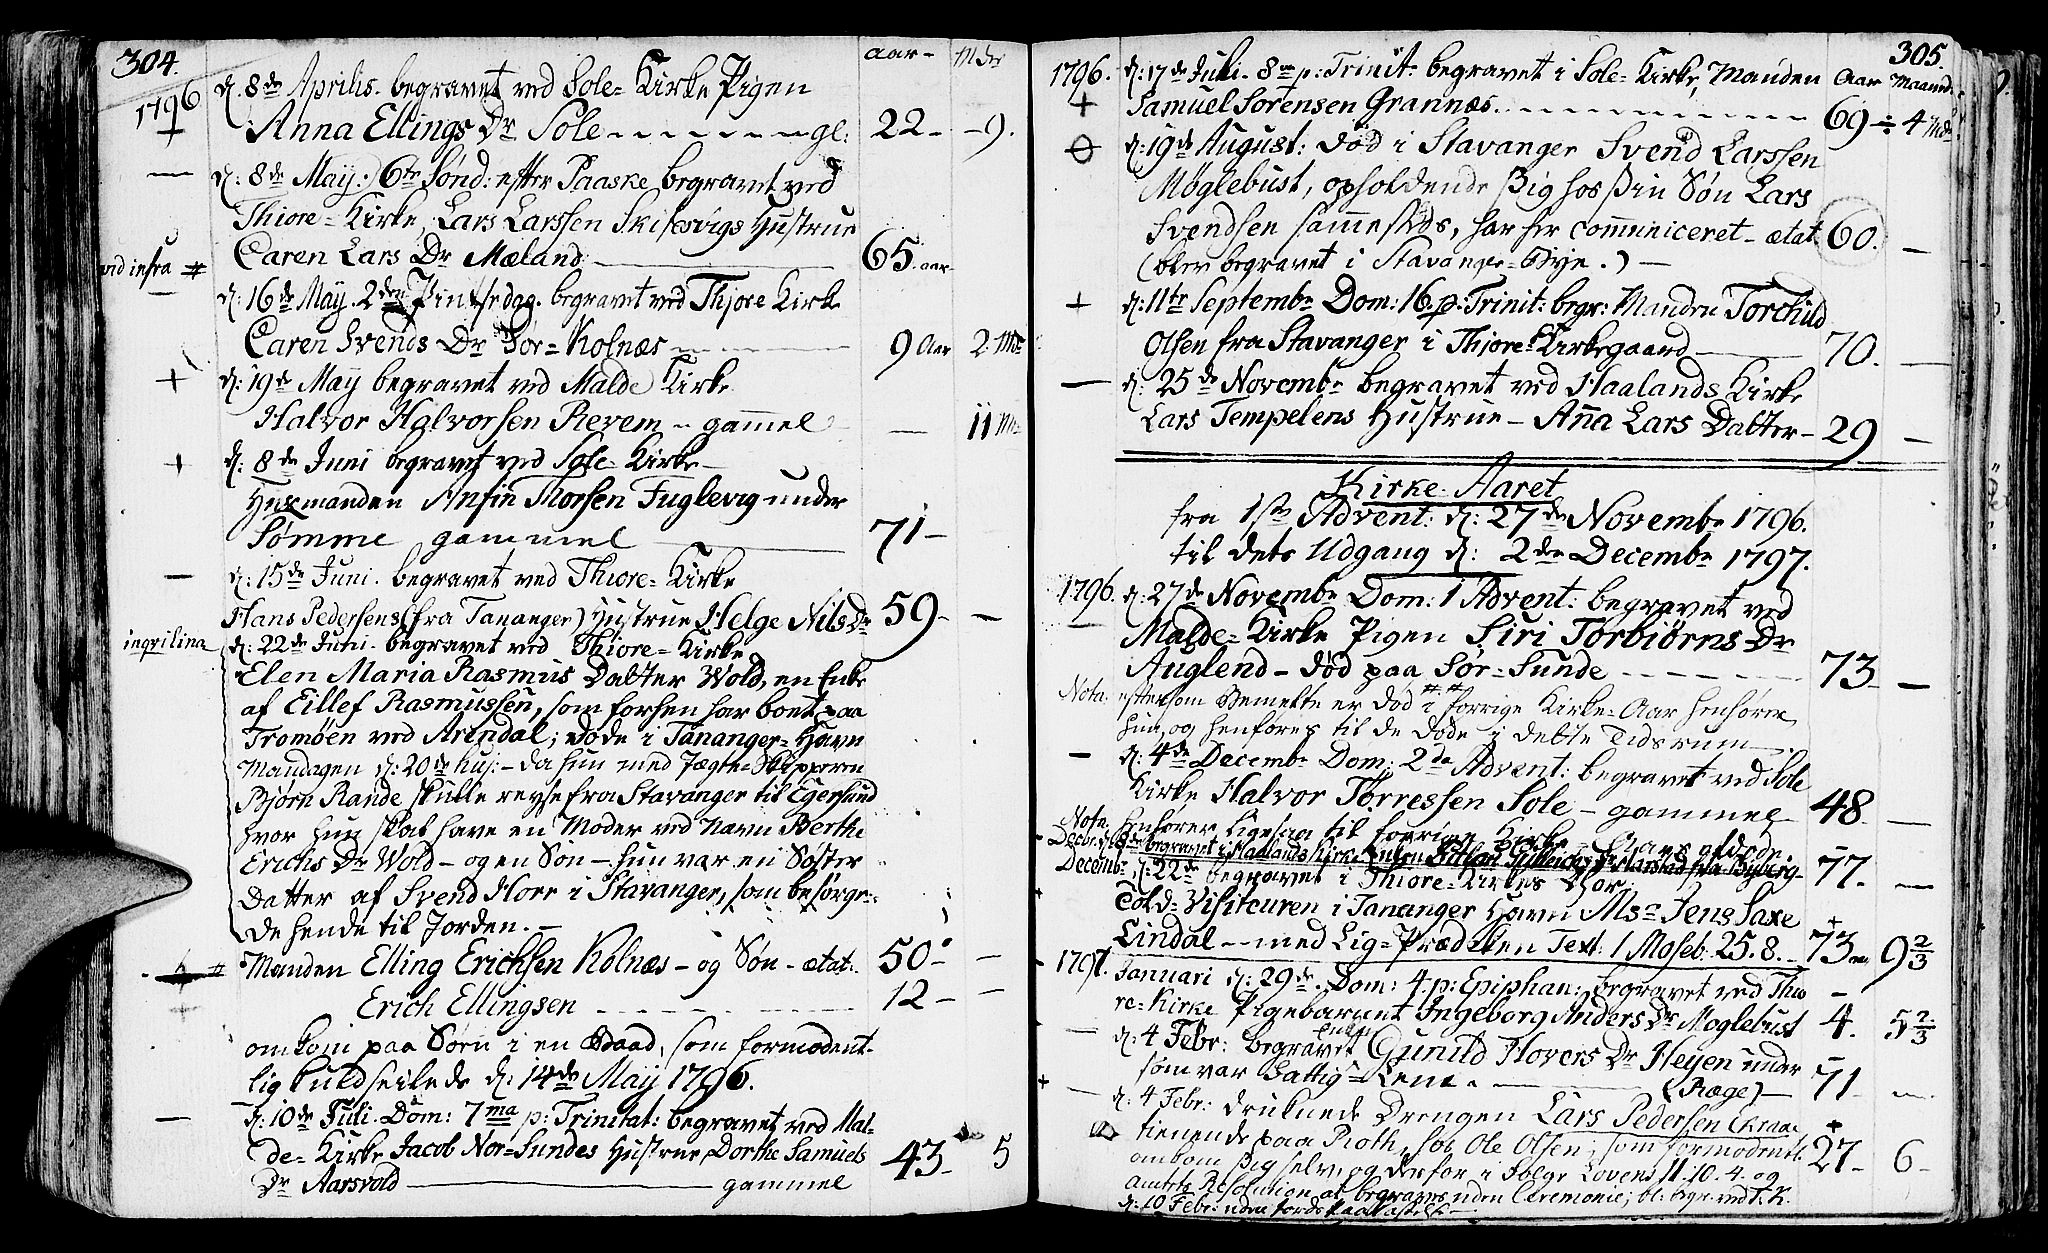 304.
aar- Mdr
1796 d. 8de Aprilis. begravet ved Sole= Kirke Pigen
Anna Ellings Dr Sole - - - - gl: 22- -9.
d: 8de May: 6te Sønd: efter Paaske begravet ved
Thiore= Kirke Lars Larssen Skiesvigs Hustrue
Caren Lars Dr Mæland. 65. aar
vid infra #
d: 16de May. 2den Pintsedag. begravet ved Thjore Kirke
Caren Svends Dr Sør=Kolnæs 9 Aar 2 Mdr
+ d: 19de May begravet ved Malde Kirke
Halvor Halvorsen Revem - gammel - 11 Mdr
+ d: 8de Juni begravet ved Sole= Kirke
Huusmanden Anfin Thorsen Fuglevig under
Sømme gammel 71-
d: 15de Juni. begravet ved Thiore= Kirke
Hans Pedersens (fra Tananger) Hustrue Helge Nils Dr 59- -
inqvilina d: 22de Juni. begravet ved Thiore= Kirke
Elen Maria Rasmus Datter Wold, en Enke
af Eillef Rasmussen, som forhen har boet paa
Tromøen ved Arendal; døde i Tananger= Havn
Mandagen d: 20de huj:- da hun med Jægte=Skipperen
Bjørn Rande skulle reyse fra Stavanger til Egersund
hvor hun skal have en Moder ved Navn Berthe
Erichs Dr Wold - og en Søn - hun var en Søster
Datter af Svend Horr i Stavanger, som besørge=
de hende til Jorden. -
# Manden Elling Erichsen Kolnæs - og Søn - ætat: 50- -
Erich Ellingsen - - - - 12- -
omkom paa Søen i en Baad, som formodent-
lig kuldseilede d: 14de May 1796.
d: 10de Juli. Dom: 7ma p: Trinitat: begravet ved Mal-
de= Kirke Jacob Nor=Sundes Hustrue Dorthe Samuels
Dr Aarsvold gammel 43- 5
305.
1796. d: 17de Juli. 8va p: Trinit: begravet i Sole= Kirke, Manden Aar Maand.
+ Samuel Sørensen Grannæs. - - - - 69 4 Mdr
d: 19de August: død i Stavanger Svend Larssen
Møglebust, opholdende sig hos sin Søn Lars
Svendsen sammesteds, har her communiceret - ætat 60. -
(blev begravet i Stavanger=Bye.) -
+ d: 11te Septembr Dom: 16. p: Trinit: begr: Manden Torchild
Olsen fra Stavanger i Thjore=Kirkegaard 70. -
- d: 25de Novembr begravet ved Haalands Kirke
Lars Tempelens Hustrue - Anna Lars Datter - 29 -
Kirke-Aaret
fra 1ste Advent: d: 27de Novembr 1796.
til dets Udgang d: 2den Decembr 1797.
1796. d: 27de Novembr Dom: 1 Advent: begravet ved
Malde= Kirke Pigen Siri Torbiørns Dr
Auglend - død paa Sør=Sunde - - - - 73- -
Nota. eftersom Bemelte er død i forrige Kirke=Aar henhører
hun, og henføres til de døde i dette Tidsrum
- d: 4de Decembr Dom: 2da Advent: begravet ved Sole
Kirke Halvor Torressen Sole - gammel 48- -
Nota. henhører ligesaa til forrige Kirke-Aars afdøde
77. -
Decembr d: 22de begravet i Thiore=Kirkes Chor
Told=Visiteuren i Tananger Havn Msr Jens Saxe
Lindal - - med Lig=Prædiken Text: 1 Moseb: 25.8. - 73 9 2/3
1797. Januari d: 29de. Dom: 4. p: Epiphan: begravet ved Thio
re=Kirke Pigebarnet Ingeborg Anders Dr Moglebust 4. 5 2/3
d: 4 Febr: begravet Enken Gunild Hovers Dr Heyen under
som var Fattig=Lem. - (Ræge) 71- -
d: 4 Febr: druknede Drengen Lars Pedersen Kraae
tienende paa Roth, hos Ole Olsen; som formodentl. 27- 6-
omkom sig selv, og derfor i Følge Lovens 11.10.4. og
Amtets Resolution at begraves uden Ceremonie; bl: begr. ved T. K.
d: 10 Febr: uden Jords Paakastelse -